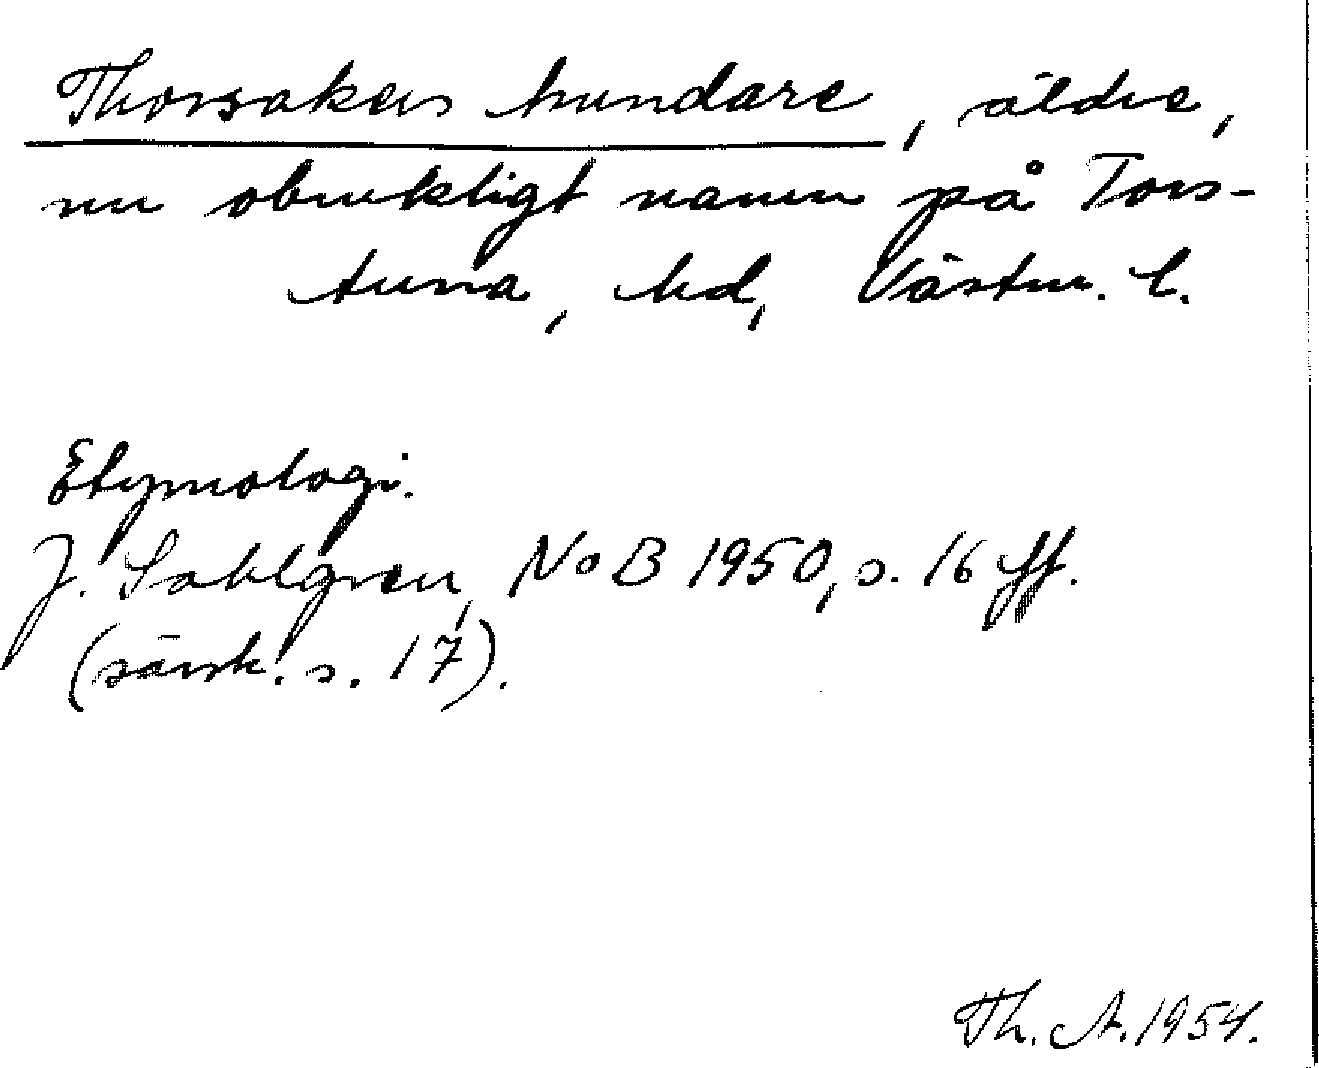 Thorsakers hundare, äldre,
nu obrukligt namn på Tors-
tuna, hd, Västm. l.
Etymologi.
J. Sahlgren, NoB 1950, s. 16 ff.
(särsk. s. 17).
Th. A. 1954.